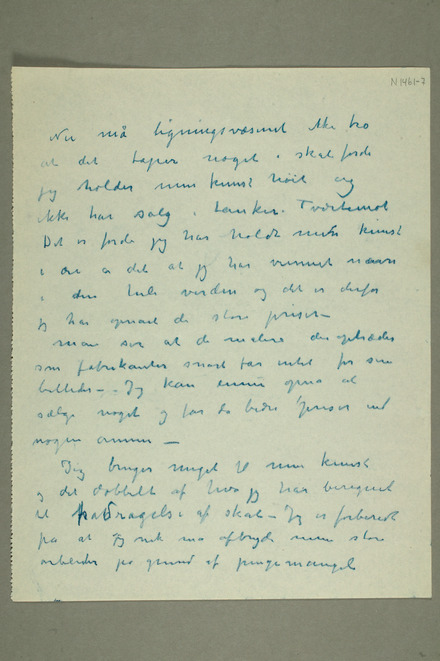 N 1461-7
Nu må ligningsvæsnet ikke tro
at det taper noget i skat fordi
jeg holder min kunst høit og
ikke har salg i tanker. Tvertimot
Det er fordi jeg har holdt min kunst
i ære at det at jeg har vunnet navn
i den hele verden og det er derfor
jeg har opnaet de store priser –
man ser at de malere der optræder
som fabrikanter snart får intet for sine
billeder – Jeg kan ennu opna at
sælge noget og får da bedre priser end
nogen annen –
Jeg bruger meget til min kunst
og det dobbelt af hva jeg har beregnet
til fradragelse af skat – Jeg er forberedt
på at jeg nok må afbryde mine store
arbeider på grund af pengemangel